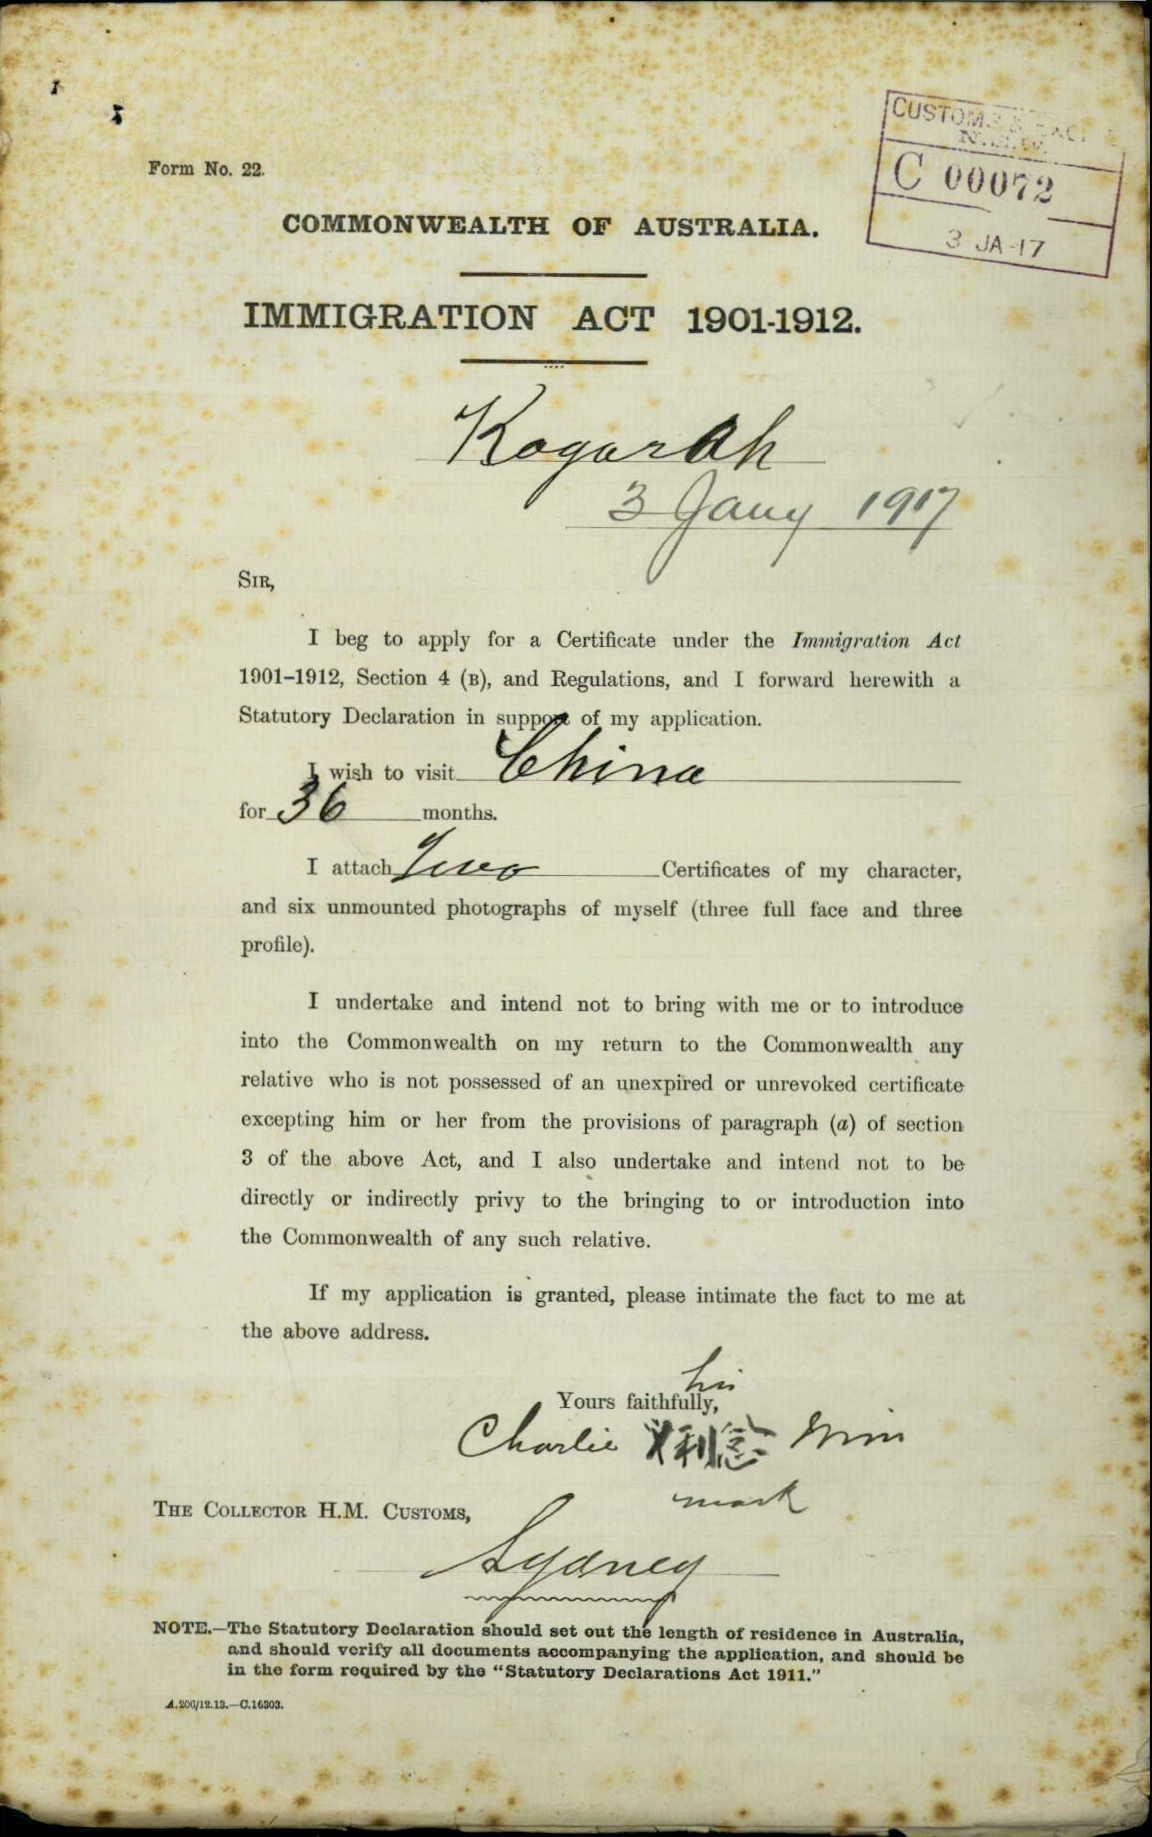 CUSTOMS & EXCISE
N.S.W.
C 00072
3 JA 17
Form No. 22.
COMMONWEALTH OF AUSTRALIA.
IMMIGRATION ACT 1901-1912.
Kogarah
3 Jany 1917
SIR,
I beg to apply for a Certificate under the Immigration Act
1901–1912, Section 4 (B), and Regulations, and I forward herewith a
Statutory Declaration in support of my application.
I wish to visit China
for 36 months.
I attach Two Certificates of my character,
and six unmounted photographs of myself (three full face and three
profile).
I undertake and intend not to bring with me or to introduce
into the Commonwealth on my return to the Commonwealth any
relative who is not possessed of an unexpired or unrevoked certificate
excepting him or her from the provisions of paragraph (a) of section
3 of the above Act, and I also undertake and intend not to be
directly or indirectly privy to the bringing to or introduction into
the Commonwealth of any such relative.
If my application is granted, please intimate the fact to me at
the above address.
his
Yours faithfully,
Charlie 利
mark
THE COLLECTOR H.M. CUSTOMS,
Sydney
NOTE.—The Statutory Declaration should set out the length of residence in Australia,
and should verify all documents accompanying the application, and should be
in the form required by the "Statutory Declarations Act 1911."
A.206/12.13.—C.16303.